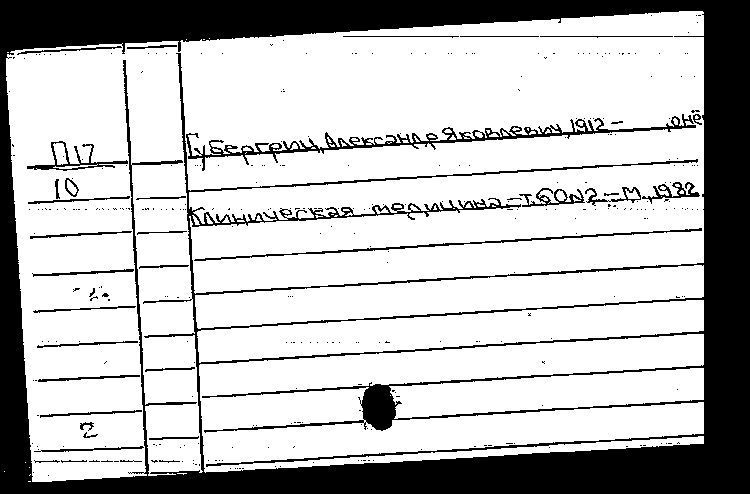 П17
10
Губергриц, Александр Яковлевич, 1912 – , о нём
Клиническая медицина. – Т. 60 N2. – М., 1982.
2